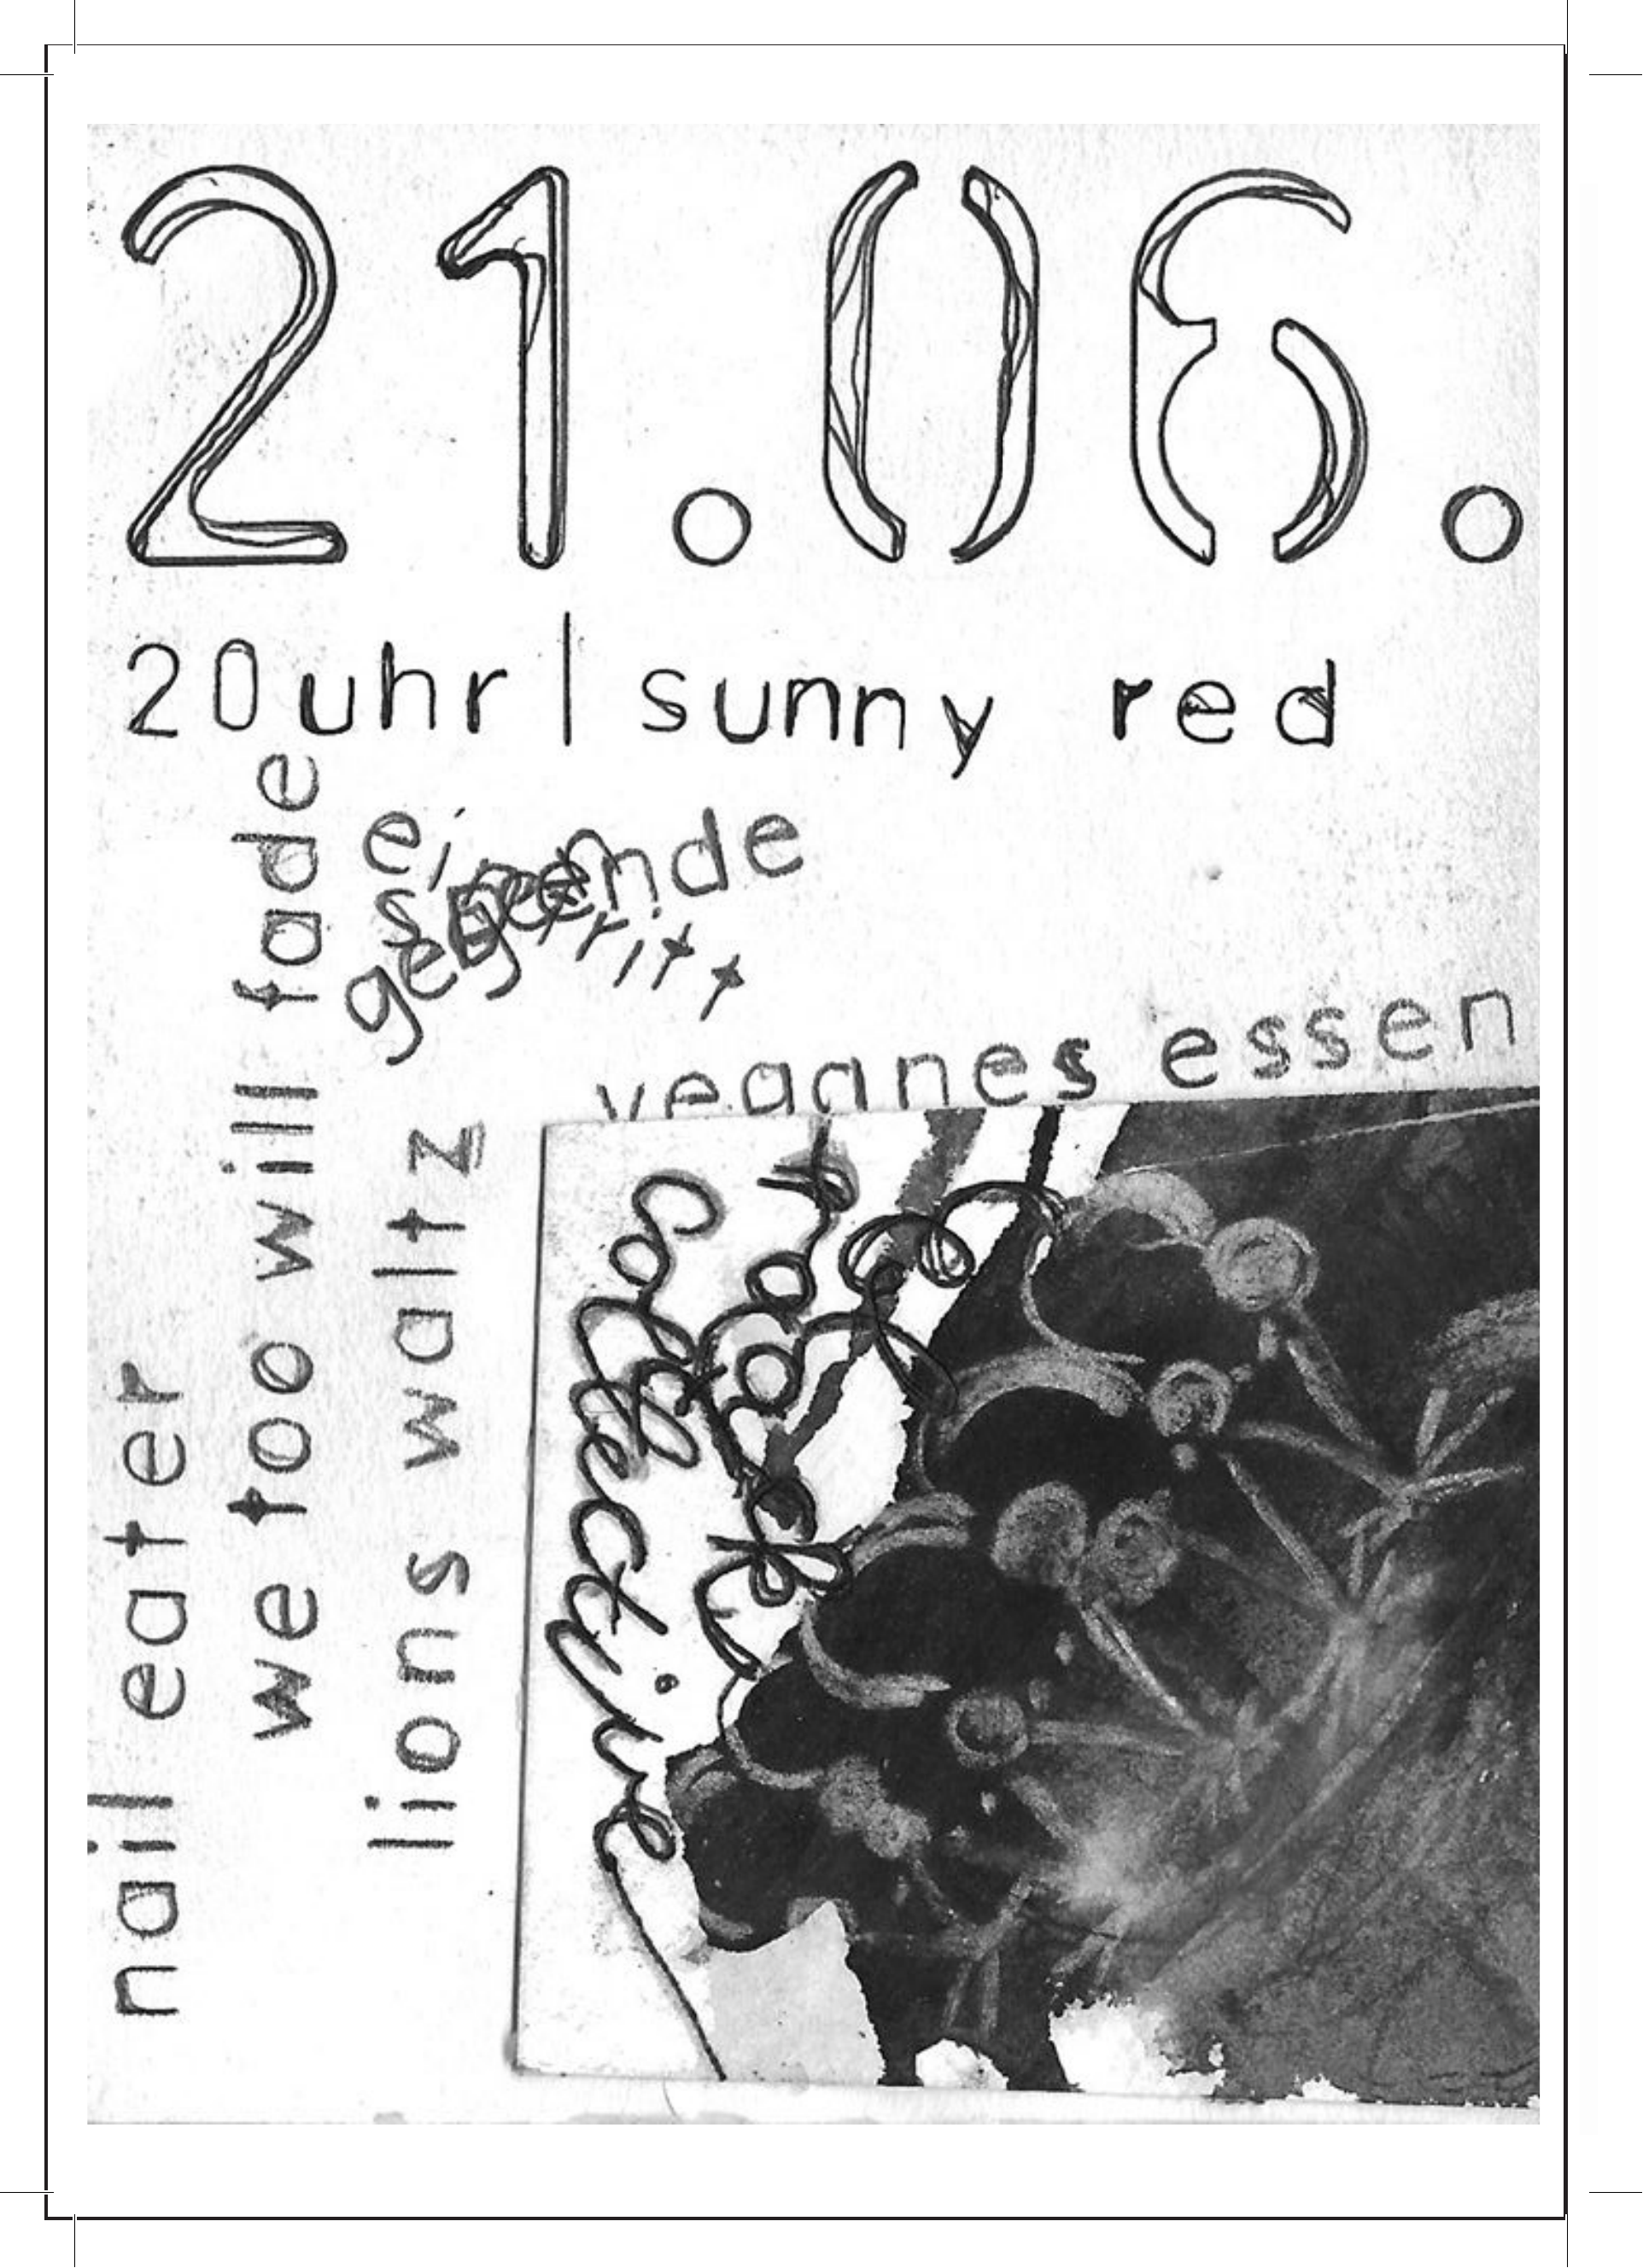 21.06.
20uhr | sunny red
eintritt
gegen
spende
veganes essen
nail eater
we too will fade
lions waltz
collective